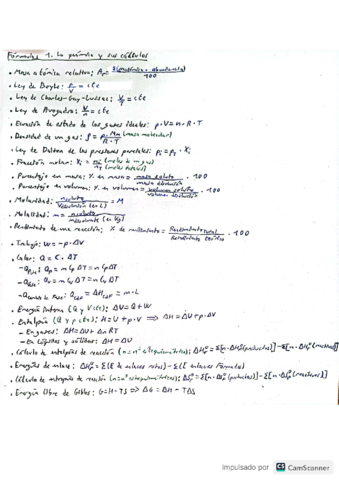 Fórmulas 1. La química y sus cálculos
• Masa atómica relativa: Ar = Σ(m atómica · abundancia)/100
• Ley de Boyle: P/V = cte
• Ley de Charles-Gay-Lussac: V/T = cte
• Ley de Avogadro: V/n = cte
• Ecuación de estado de los gases ideales: p·V = n·R·T
• Densidad de un gas: ρ = p·Mm (masa molecular)/R·T
• Ley de Dalton de las presiones parciales: pi = pT · Xi
• Fracción molar: Xi = ni (moles de un gas)/nT (moles totales)
• Porcentaje en masa: % en masa = masa soluto/masa disolución · 100
• Porcentaje en volumen: % en volumen = volumen soluto/volumen disolución · 100
• Molaridad: n soluto/V disolución (en L) = M
• Molalidad: m = n soluto/m disolvente (en kg)
• Rendimiento de una reacción: % de rendimiento = Rendimiento real/Rendimiento teórico · 100
• Trabajo: W = -p·ΔV
• Calor: Q = C·ΔT
- Q = m Cp ΔT = n Cp ΔT
- Q = m L
• Energía Interna (Q y V cte): ΔU = Q + W
• Entalpía (Q y p cte): H = U + p·V ⟹ ΔH = ΔU + p·ΔV
- En gases: ΔH = ΔU + Δn RT
- En líquidos y sólidos: ΔH = ΔU
• Cálculo de entalpías de reacción (n = nº estequiométricos): ΔHº = Σ[n·ΔHº(productos)] - Σ[n·ΔHº(reactivos)]
• Energías de enlace: ΔHº = Σ(E de enlaces rotos) - Σ(E enlaces formados)
• Energía libre de Gibbs: G = H - TS ⟹ ΔG = ΔH - TΔS
Impulsado por CS CamScanner